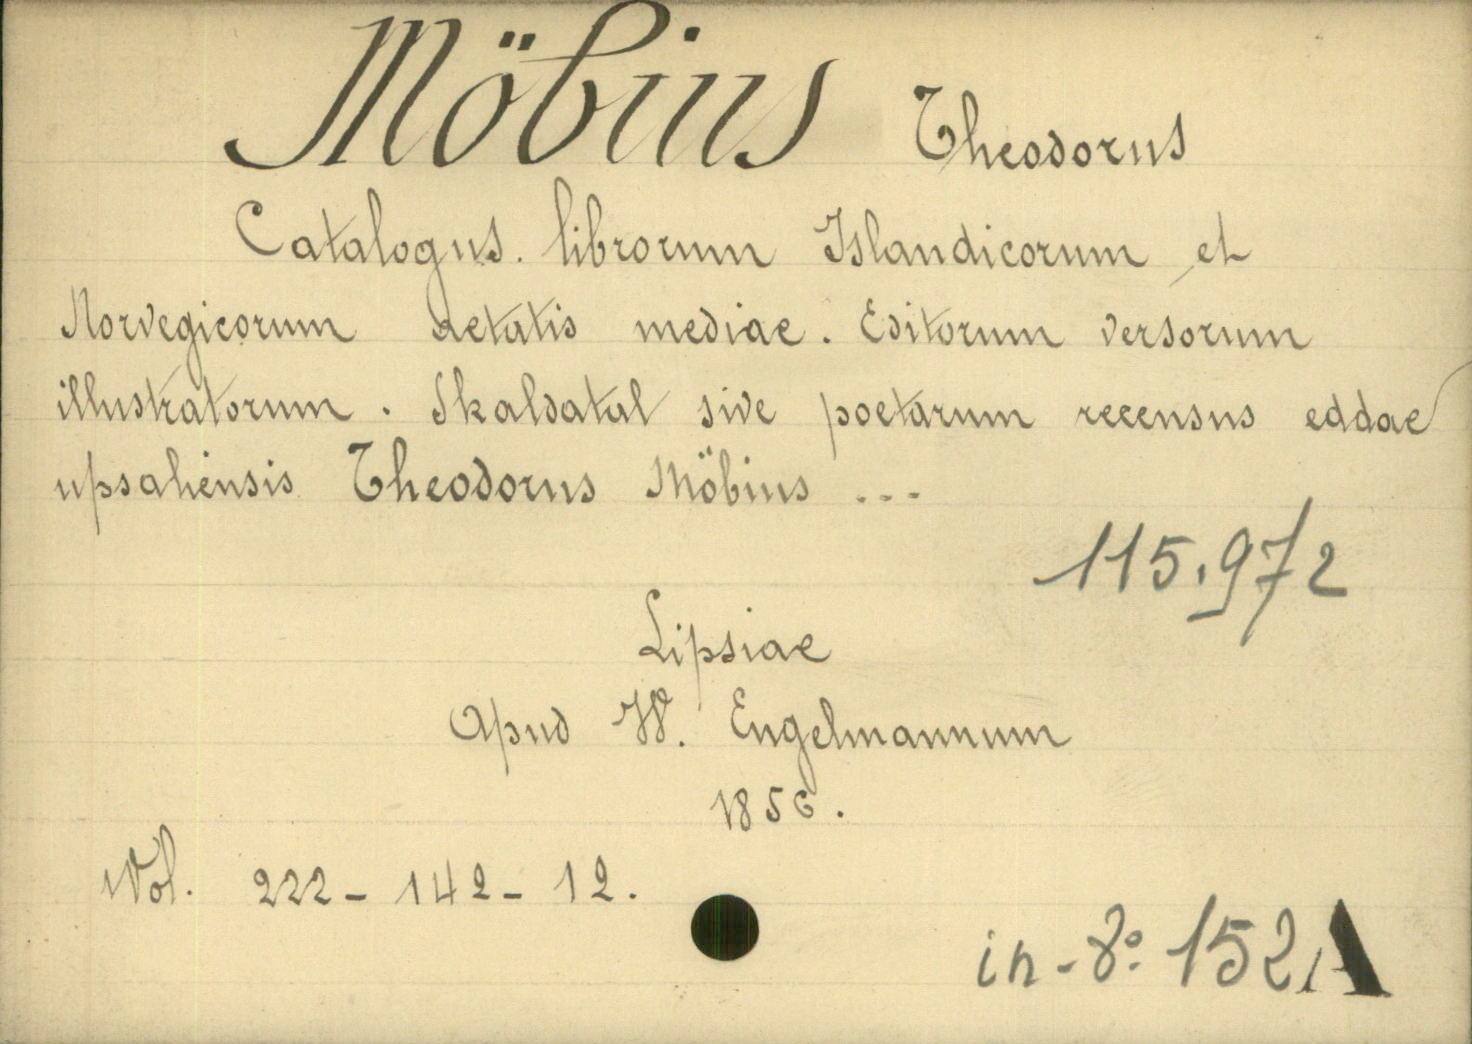 Möbius Theodorus
Catalogus. librorum Islandicorum et
Norvegicorum aetatis mediae. Editorum versorum
illustratorum. Skaldatal sive poetarum recensus eddae
upsaliensis Theodorus Möbius ...
115.972
Lipsiae
Apud W. Engelmannum
1856.
Vol. 222-142-12.
in-8º 152A